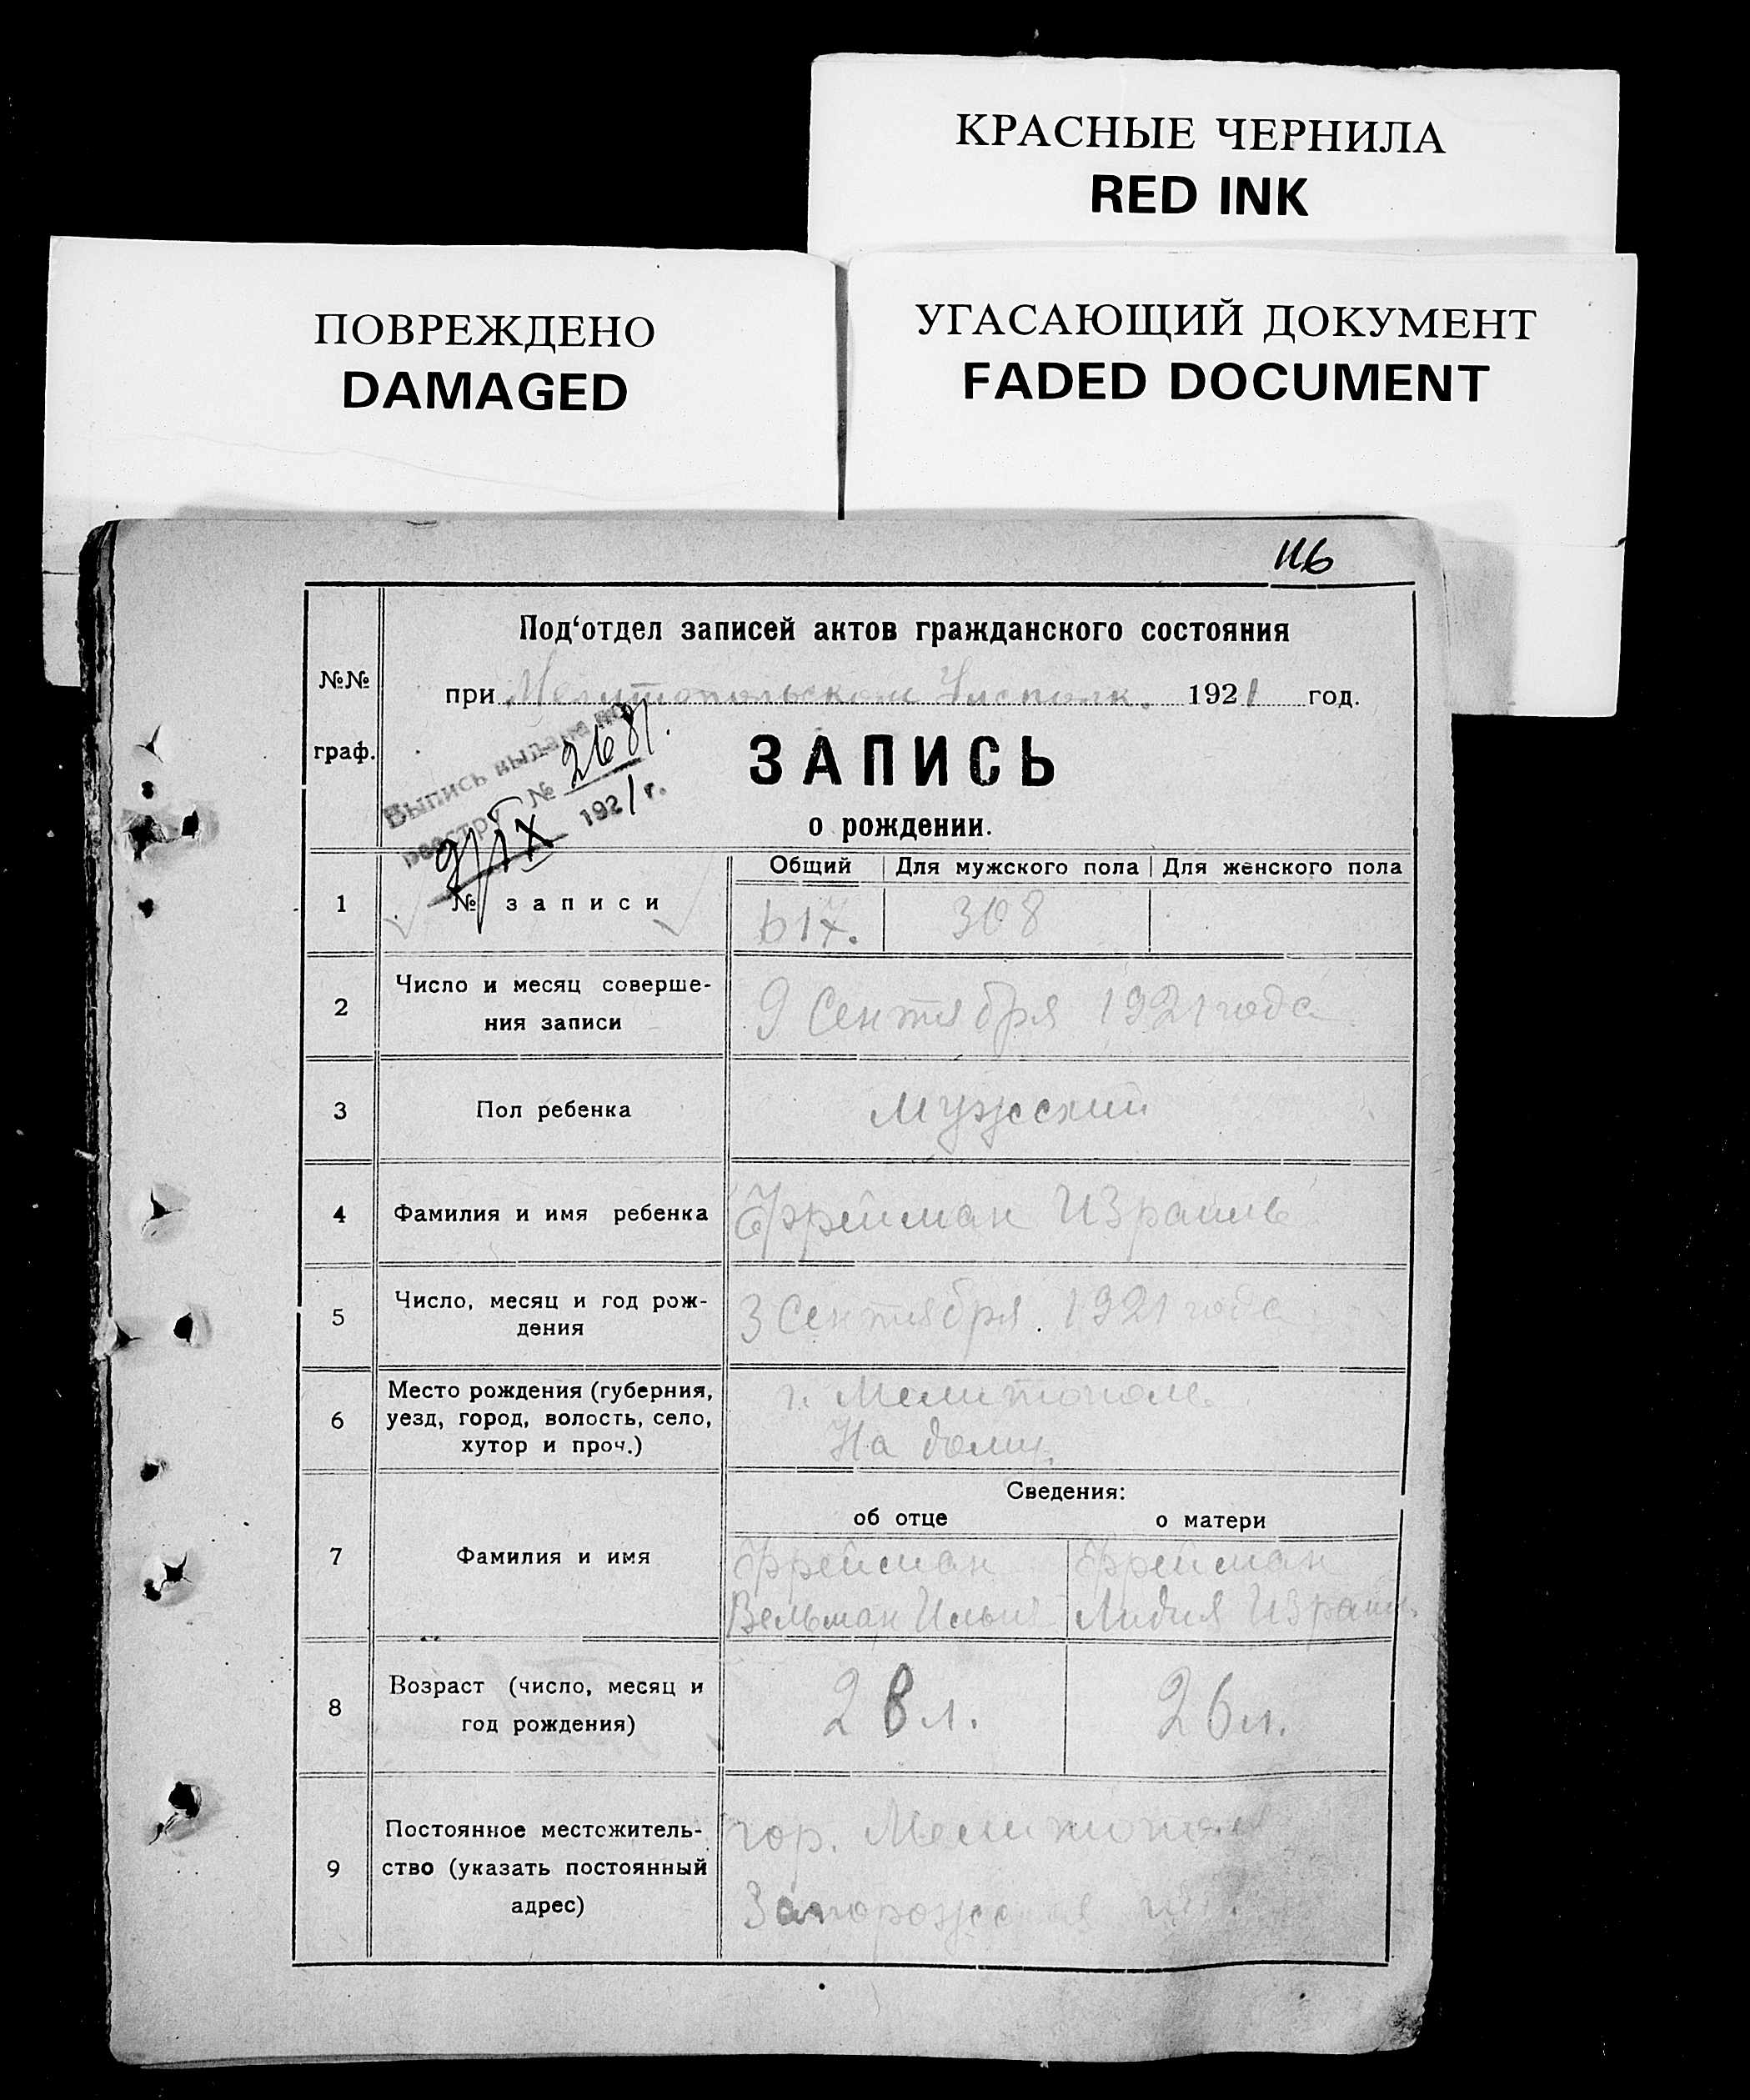 КРАСНЫЕ ЧЕРНИЛА
RED INK
ПОВРЕЖДЕНО
DAMAGED
УГАСАЮЩИЙ ДОКУМЕНТ
FADED DOCUMENT
116
Под‘отдел записей актов гражданского состояния
№№ граф.
при Мелитопольском Уисполк. 1921 год.
Выпись выдана по
реестру № 2681.
9/IX 1921 г.
ЗАПИСЬ
о рождении.
Общий Для мужского пола Для женского пола
1 № записи 617. 308
2 Число и месяц соверше-
ния записи 9 Сентября 1921 года
3 Пол ребенка Мужский
4 Фамилия и имя ребенка Эфрейман Израиль
5 Число, месяц и год рож-
дения 3 Сентября. 1921 года
6 Место рождения (губерния,
уезд, город, волость, село,
хутор и проч.)
г. Мелитополь.
На дому.
Сведения:
об отце о матери
7 Фамилия и имя
Эфрейман Эфрейман
Вельман Лидия
8 Возраст (число, месяц и
год рождения) 28 л. 26 л.
9 Постоянное местожитель-
ство (указать постоянный
адрес)
гор. Мелитополь
Запорожская